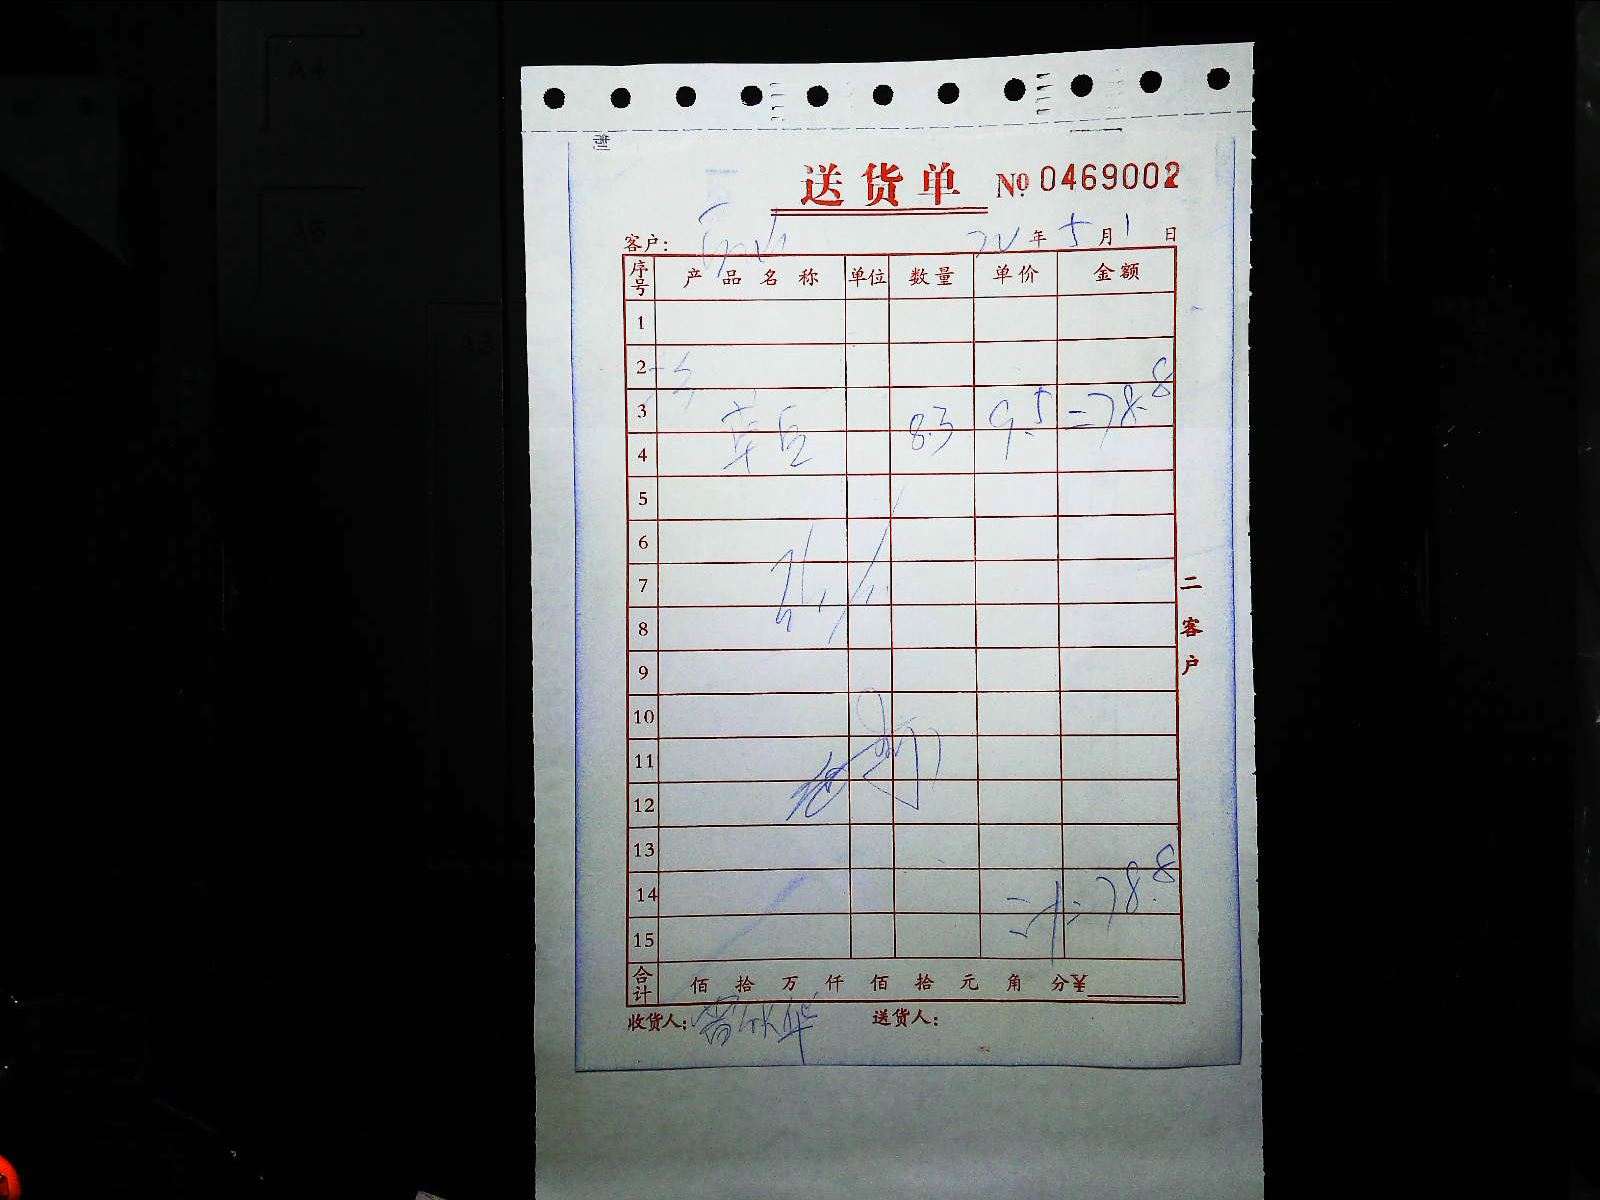 送货单 №0469002
客户： 年 5 月 1 日
序号 产品名称 单位 数量 单价 金额
1
2
3 8.3 9.5 =78.8
4
5
6
7
8
9
10
11
12
13
14 计=78.8
15
合计 佰 拾 万 仟 佰 拾 元 角 分¥
收货人： 送货人：
二客户